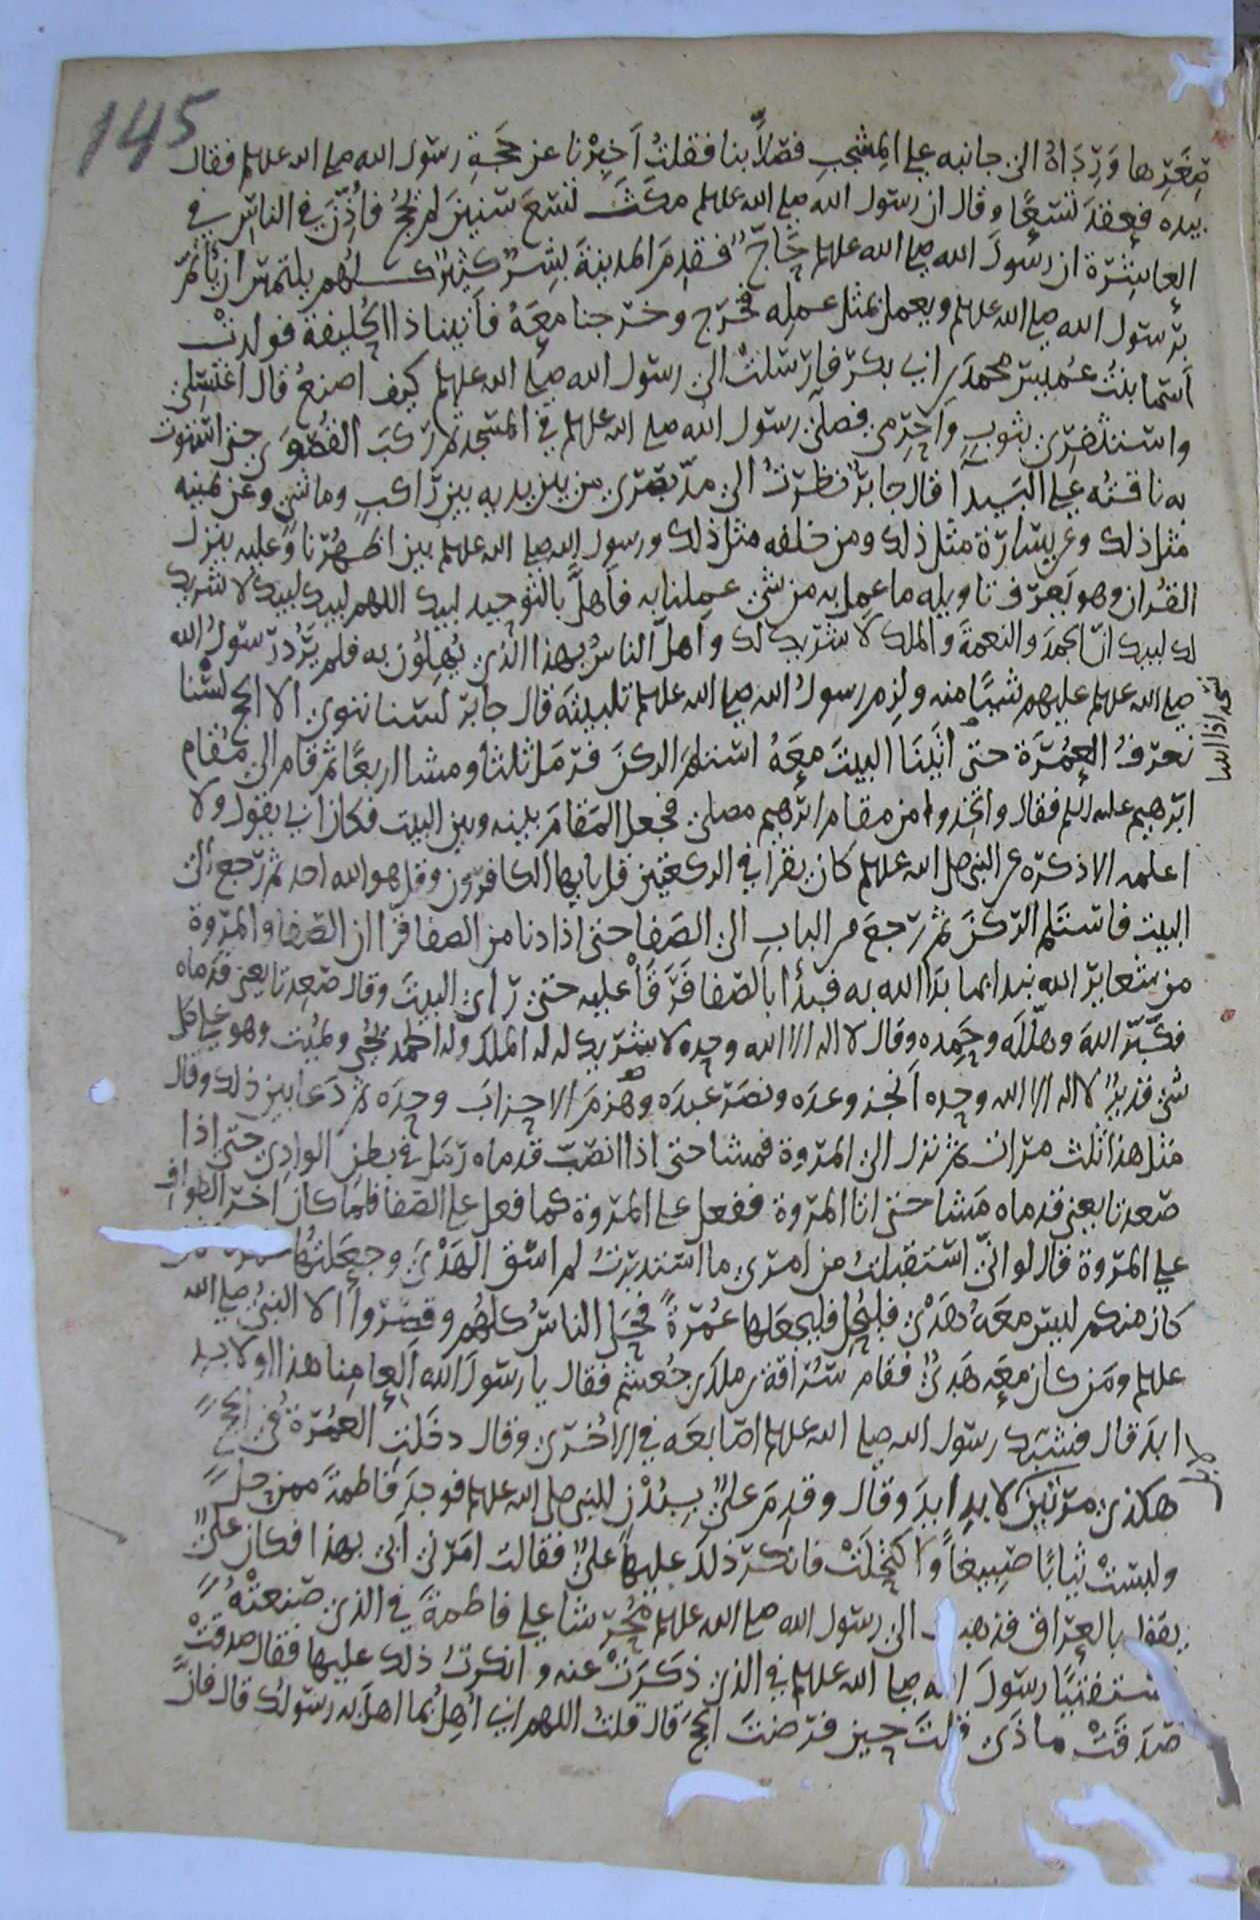 145
صِغَرِها وَرِدَاهُ الى جانبه على المِشْجبِ فصَلَّا بنا فقلتُ أخبِرْنا عن حَجَةِ رسول الله صلى الله عليهم فقال
بيده فعقدَ تسْعًا وقال ان رسول الله صلى الله عليهم مكثَ تسَعَ سنينَ لم يحُجُ فأذّنَ في الناسِ في
العاشِرَة ان رسولَ الله صلى الله عليهم حَاجّ فقدِمَ المدينةَ بشرٌ كثيرٌ كلهُم يلتمسُ ان يأتمَّ
برسول الله صلى الله عليهم ويعمل بمثل عمله فخرج وخرجنا معَهُ فأتينا ذا الحُليفة فولدتْ
أسما بنتُ عُميس محمدَ بن ابي بكر فأرسلتْ الى رسول الله صلى الله عليهم كيف اصنعُ قال اغتسِلي
واستثفرِي بثوبٍ وأحرِمي فصلى رسول الله صلى الله عليهم في المسجد ثم ركبَ القُصْوَى حتى استوت
به ناقتُه على البَيدآ قال جابرٌ نظرتُ الى مدّ بَصَري من بين يديه بين راكبٍ وماشي وعن يمينه
مثل ذلك وعن يسَارَة مثل ذلك ومن خلفه مثل ذلك ورسول الله صلى الله عليهم بين اظهُرنا وعليه ينزل
القُران وهو يَعرف تاويله ما عمِل به من شي عمِلنا به فأهلَّ بالتوحيد لبيك اللهم لبيك لبيك لا شريك
لك لبيك انّ الحمدَ والنعمةَ والملك لا شريك لك وأهلّ الناسُ بهذا الذي يُهِلوُن به فلم يَرُد رسَولُ الله
صلى الله عليهم عليهم شيئًا منه ولزِم رسولُ الله صلى الله عليهم تلبيتَه قال جابرٌ لسنا ننوي الا الحج لسْنا
نعرفُ العُمْرَة حتى أتَينَا البيتَ معَهُ استلمَ الركنَ فرَمَل ثلثًا ومشا اربعًا ثم قام الى مَقام
ابرهيم عليه السلم فقال واتخِذوا من مقام ابرهيم مصلى فجعل المَقامَ بينه وبين البيت فكان ابي يقول ولا
اعلمه الا ذكرَه عن النبي صلى الله عليهم كان يقرا في الركعتين قل يايها الكافرون وقل هو الله احد ثم رجع الى
البيت فاستَلم الركنَ ثم رجعَ من الباب الى الصَفا حتى اذا دنا من الصفا قرأ ان الصَفا والمروة
من شعاير الله نبدا بما بدَا الله به فبدأ بالصَفا فَرَقَأ عليه حتى رأى البيتَ وقال صَعِدتا يعني قدماه
فكبّر اللهَ وهلّله وحَمِده وقال لا اله الا الله وحده لا شريك له له الملك وله الحمد يحُيي ويُميت وهو على كل
شي قديرٌ لا اله الا الله وحده أنجز وعدَه ونصَر عبدَه وهزمَ الاحزابَ وحدَه ثم دَعا بين ذلك وقال
مثل هذا ثلث مرات ثم نزل الى المروة فمشا حتى اذا انصَبّت قدماه رَمَل في بطن الوادِي حتى اذا
صَعدتا يعني قدماه مَشا حتى اتا المروة ففعل على المروة كما فعل على الصَفا فلما كان اخر الطواف
على المروة قال لو انّي استقبلتُ من امري ما استدبرتُ لم اسُق الهَدْيَ وجعَلتُها
كان منكم ليس معَهُ هَدْيٌ فليُحِل فليجعَلها عُمرةً فحَل الناسُ كلهُم وقصّروا الا النبيُ صلى الله
عليهم ومَن كان معَه هَديٌ فقام سُراقة بن ملك بن جُعشم فقال يا رسولَ الله ألعامِنا هذا او لابد
ابدَ قال فشبّك رسولُ الله صلى الله عليهم اصَابعَه في الاُخرى وقال دخَلتِ العُمْرَة في الحج
هكذى مرتين لابدِ ابدَ وقال وقدِمَ عليٌ ببُدْنِ للنبي صلى الله عليهم فوجدَ فاطمةَ ممن حل
ولبسَتْ ثيابًا صَبِيغاً واكتحلَتْ فانكرَ ذلك عليها عليٌ فقالت امَرَني أبي بهذا فكان عليٌ
يقول بالعِراق فذهبت الى رسول الله صلى الله عليهم مُحَرّشا على فاطمةَ في الذي صَنعتْهُ
مستفتيًا رسولَ الله صلى الله عليهم في الذي ذكرَتْ عنه وانكرتُ ذلك عليها فقال صدقتْ
صَدَقتْ ما ذَى قلتَ حين فرضتَ الحجَ قال قلتُ اللهم اني اُهِل بما اهلّ به رسَولك قال فانّ